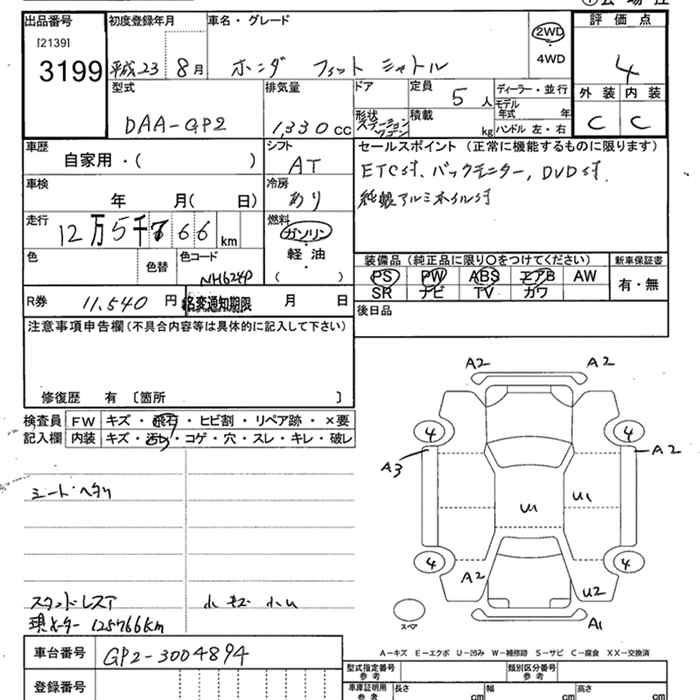 出品番号
[2139]
3199
初度登録年月
平成23 8月
車名・グレード
ホンダ フィット シャトル
2WD
4WD
評価点
4
外装 内装
C C
型式
DAA-GP2
排気量
1,330cc
ドア
定員
5人
形状
ステーションワゴン
積載
kg
ディーラー・並行
モデル年式 年
ハンドル 左・右
車歴
自家用・( )
シフト
AT
セールスポイント(正常に機能するものに限ります)
ETC付、バックモニター、DVD付、
純銀アルミホイル付
車検
年 月( 日)
冷房
あり
走行
12万5千766km
燃料
ガソリン・
軽油・
( )
色
色替
色コード
NH624P
装備品(純正品に限り〇をつけてください)
新車保証書
PS PW ABS エアB AW
SR ナビ TV カワ
有・無
R券 11,540円
名変通知期限 月 日
後日品
注意事項申告欄(不具合内容等は具体的に記入して下さい)
修復歴 有〔箇所 〕
検査員記入欄
FW キズ・飛石・ヒビ割・リペア跡・×要
内装 キズ・汚れ・コゲ・穴・スレ・キレ・破レ
シート・ヘタリ
スタンドレスア
小キズ 小U
現メーター 125766km
A2 A2
4 4
A3 A2
U1 U1
4 4
A2 U2
スペア A1
A-キズ E-エクボ U-凹み W-補修跡 S-サビ C-腐食 XX-交換済
車台番号 GP2-3004894
登録番号
型式指定番号 参考
類別区分番号 参考
車庫証明用 参考
長さ cm
幅 cm
高さ cm